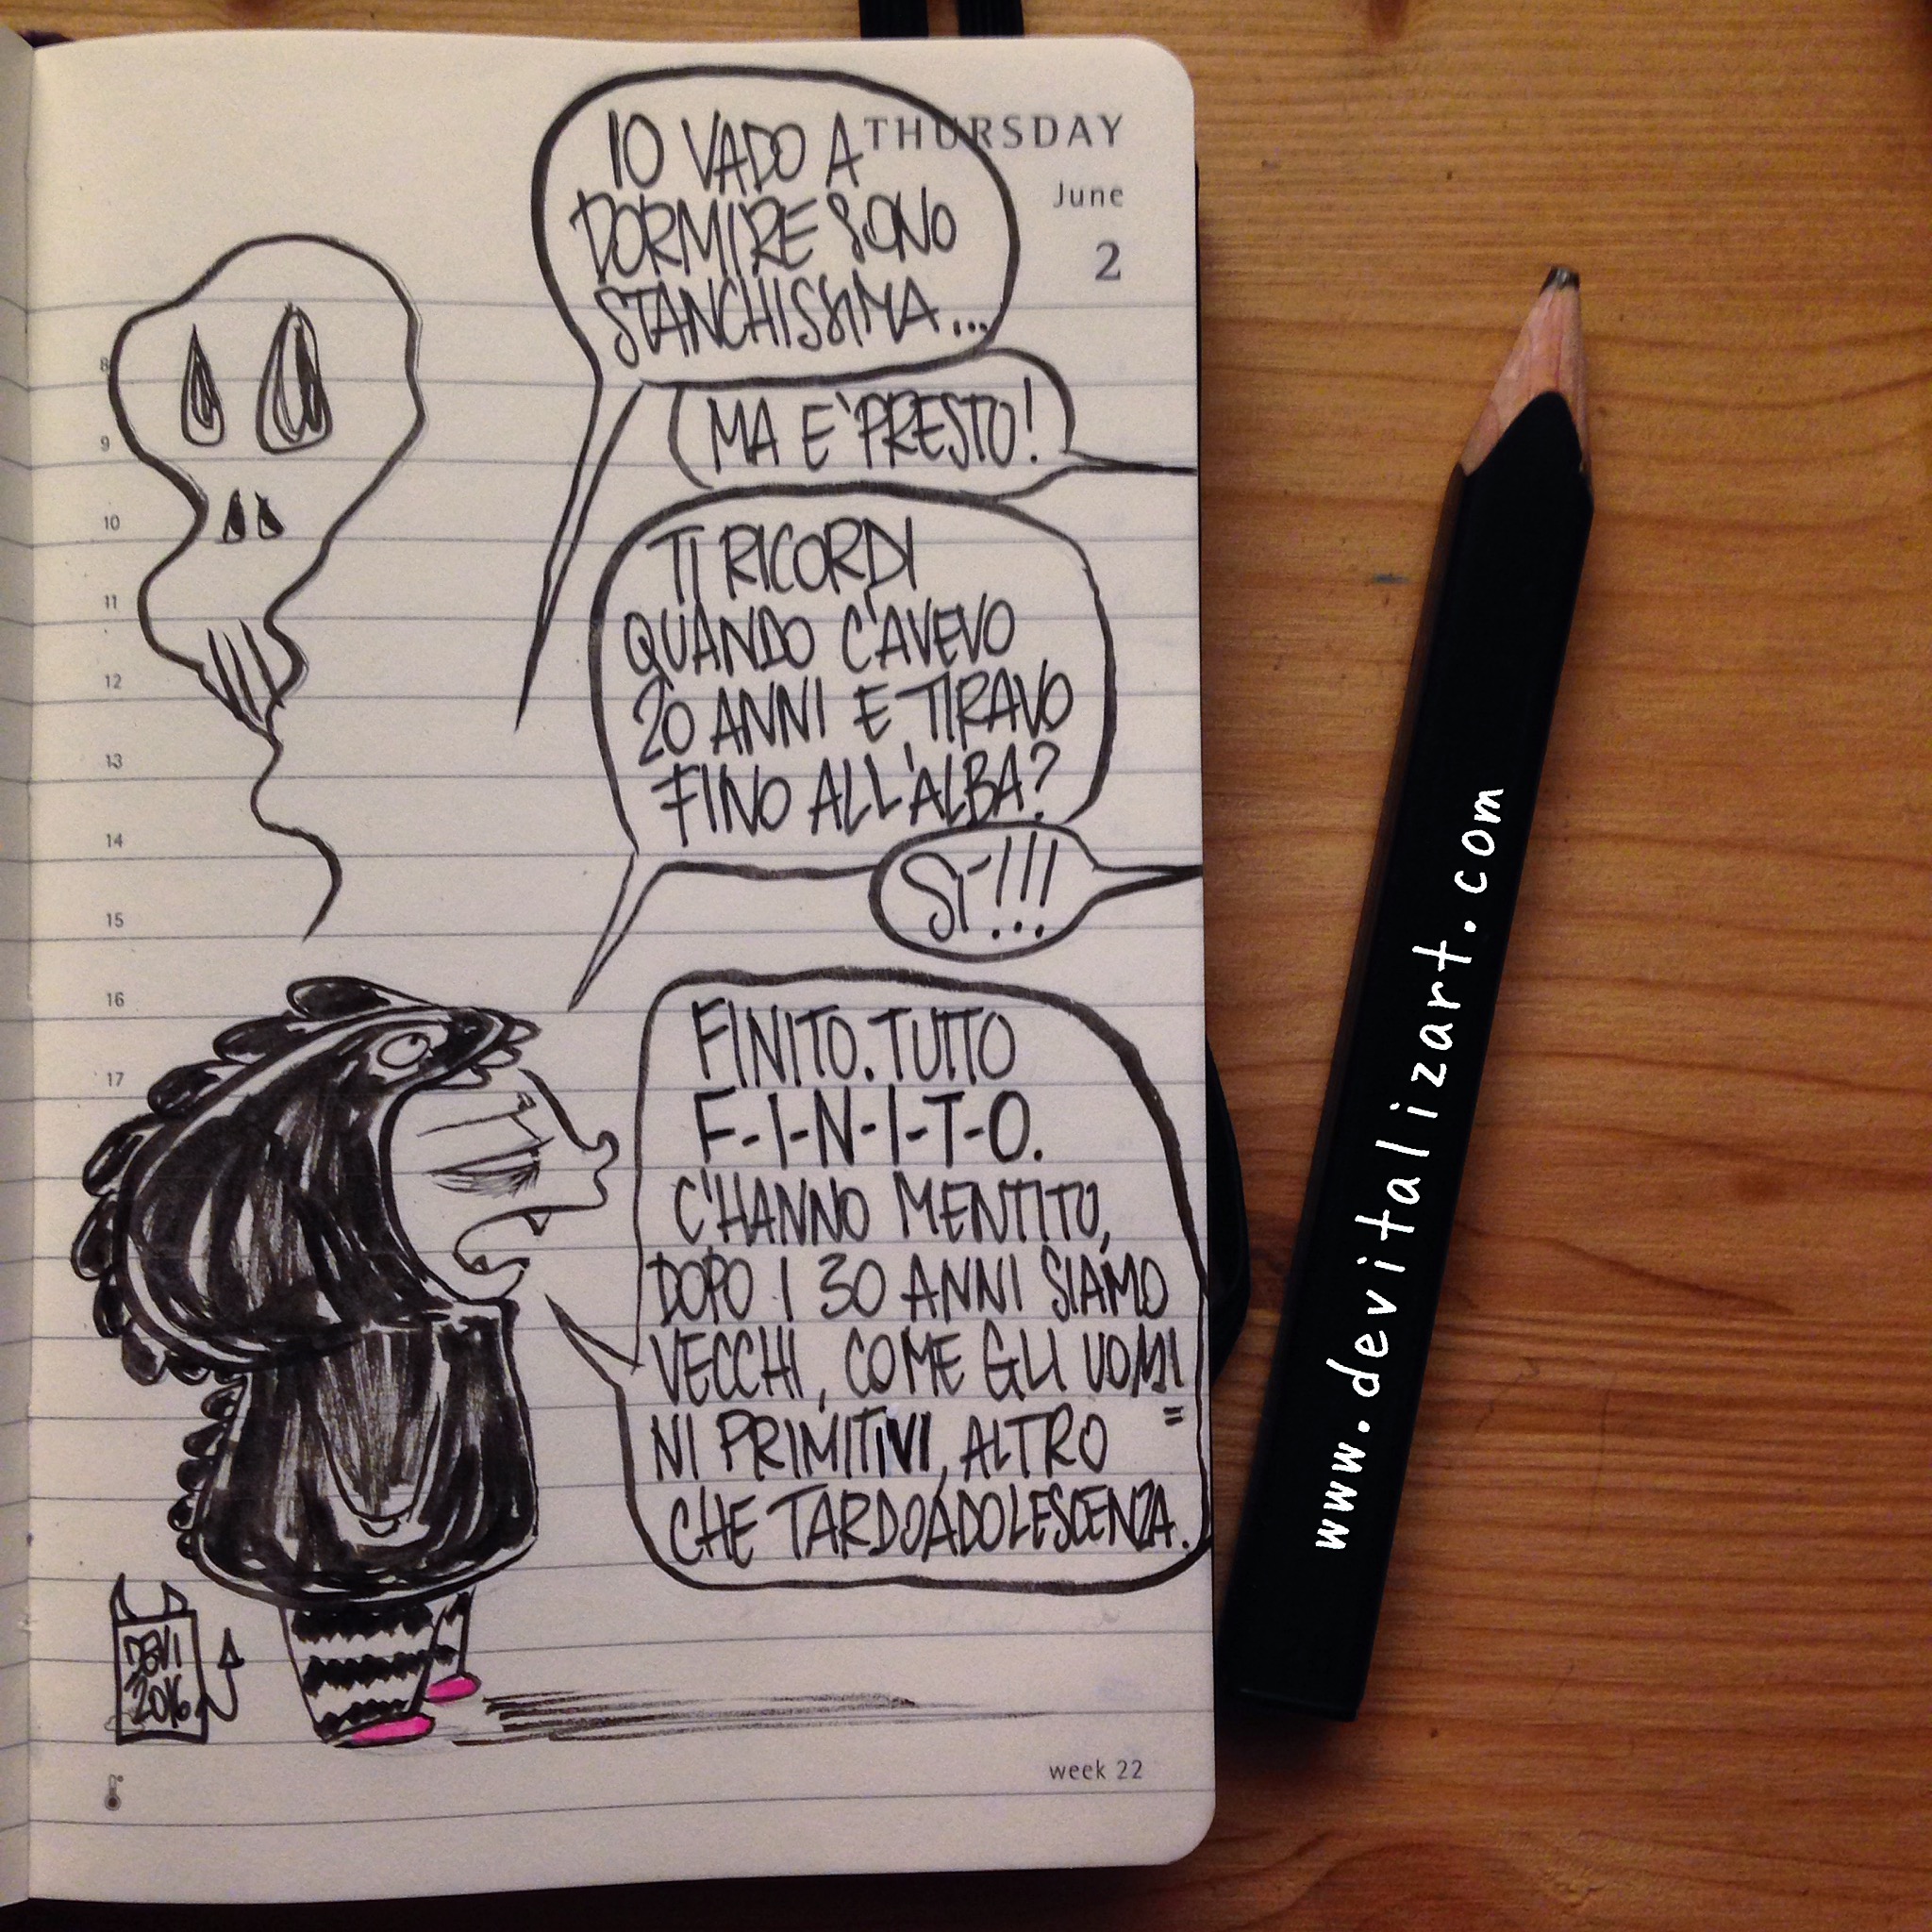 THURSDAY
June
2
IO VADO A
DORMIRE SONO
STANCHISSIMA...
MA E' PRESTO!
TI RICORDI
QUANDO C'AVEVO
20 ANNI E TIRAVO
FINO ALL'ALBA?
SI'!!!
FINITO. TUTTO
F-I-N-I-T-O.
C'HANNO MENTITO,
DOPO I 30 ANNI SIAMO
VECCHI, COME GLI UOMI
NI PRIMITIVI, ALTRO =
CHE TARDOADOLESCENZA.
8
9
10
11
12
13
14
15
16
17
DEVI
2016
week 22
www.devitalizart.com